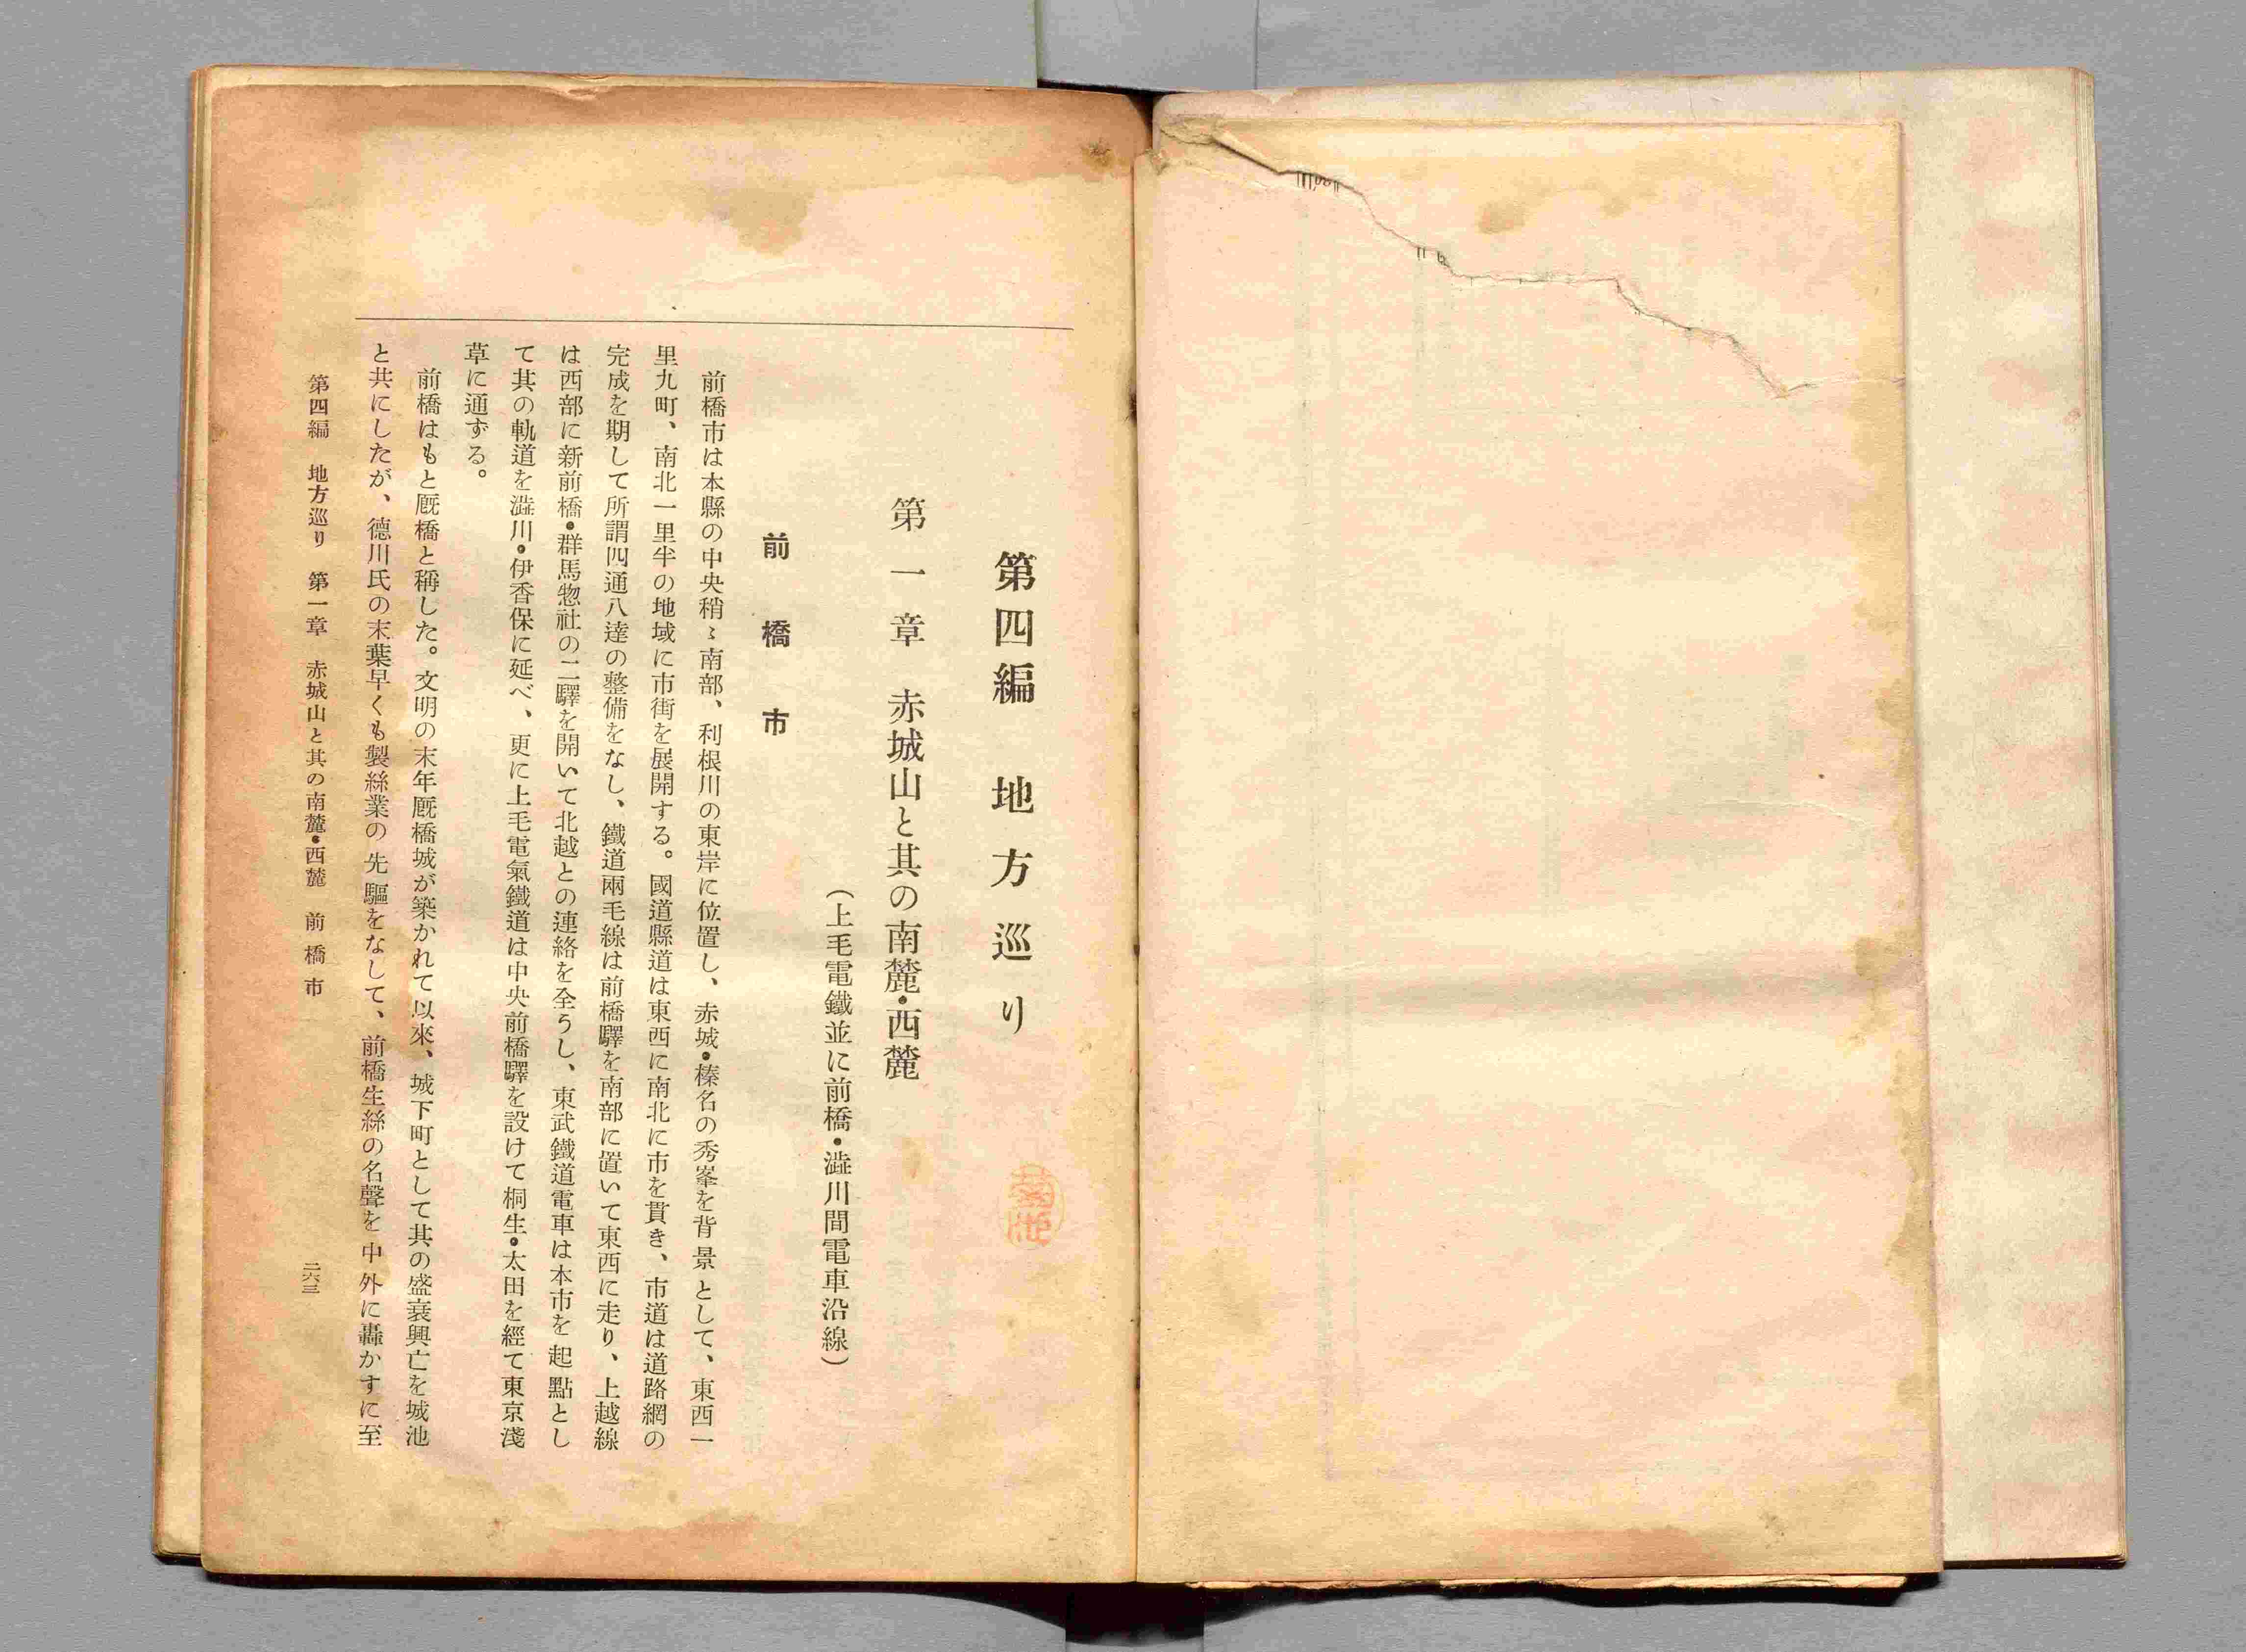 第四編　地方巡り
第一章　赤城山と其の南麓・西麓
（上毛電鐵並に前橋・澁川間電車沿線）
前橋市
前橋市は本縣の中央稍〻南部、利根川の東岸に位置し、赤城・榛名の秀峯を背景として、東西一
里九町、南北一里半の地域に市街を展開する。國道縣道は東西に南北に市を貫き、市道は道路網の
完成を期して所謂四通八達の整備をなし、鐵道兩毛線は前橋驛を南部に置いて東西に走り、上越線
は西部に新前橋・群馬惣社の二驛を開いて北越との連絡を全うし、東武鐵道電車は本市を起點とし
て其の軌道を澁川・伊香保に延べ、更に上毛電氣鐵道は中央前橋驛を設けて桐生・太田を經て東京淺
草に通ずる。
前橋はもと厩橋と稱した。文明の末年厩橋城が築かれて以來、城下町として其の盛衰興亡を城池
と共にしたが、德川氏の末葉早くも製絲業の先驅をなして、前橋生絲の名聲を中外に轟かすに至
第四編　地方巡り　第一章　赤城山と其の南麓・西麓　前橋市
二六三